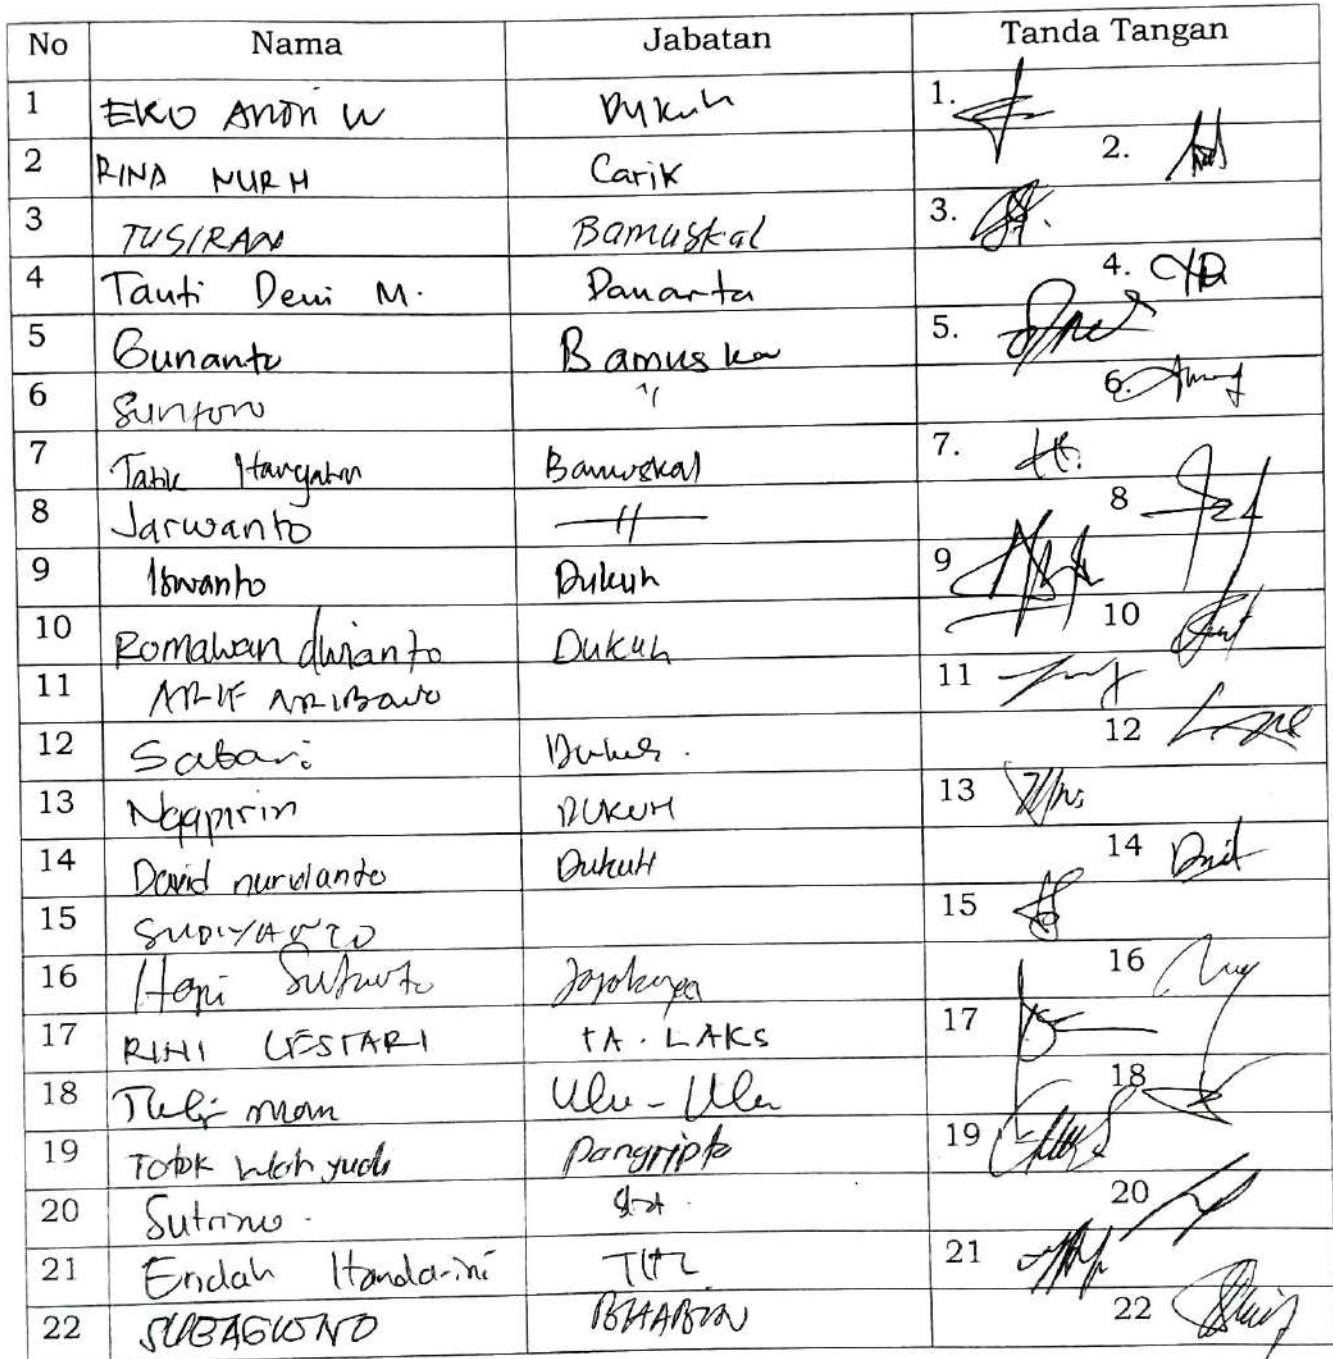 No Nama Jabatan Tanda Tangan
1 EKO ANDRI W Dukuh 1.
2 RINA NUR H Carik 2.
3 TUSIRAN Bamuskal 3.
4 Tanti Dewi M. Danarta 4.
5 Gunanto Bamuska 5.
6 Suntoro " 6.
7 Tatik Haryatin Bamuskal 7.
8 Jarwanto —"— 8
9 Iswanto Dukuh 9
10 Romawan dwianto Dukuh 10
11 ARIF ARIBOWO 11
12 Sabari Dukuh. 12
13 Ngapirin DUKUH 13
14 David nurwianto DukuH 14
15 SUDIYANTO 15
16 Heni Jogoboyo 16
17 RINI LESTARI TA. LAKS 17
18 Ulu-Ulu 18
19 Totok Wahyudi Pangripto 19
20 Sutrisno. 20
21 Endah Handarini 21
22 SUBAGIONO BHABIN 22